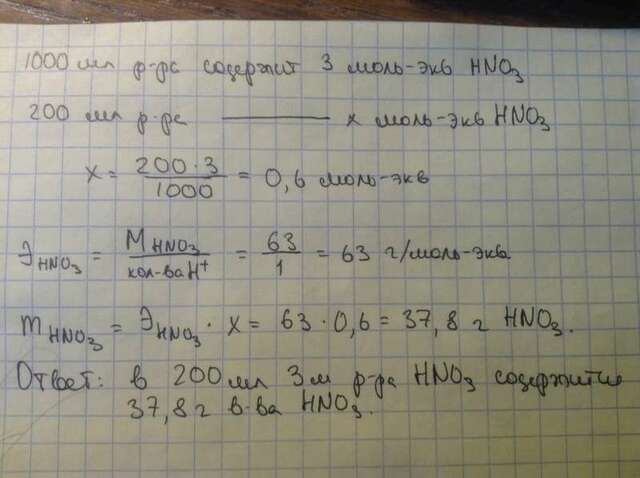 1000 мл р-ра содержит 3 моль-экв HNO₃
200 мл р-ра ——— x моль-экв HNO₃
x = 200·3 / 1000 = 0,6 моль-экв
Э HNO₃ = M HNO₃ / кол-ва H⁺ = 63 / 1 = 63 г/моль-экв
m HNO₃ = Э HNO₃ · x = 63 · 0,6 = 37,8 г HNO₃.
Ответ: в 200 мл 3м р-ра HNO₃ содержится
37,8 г в-ва HNO₃.